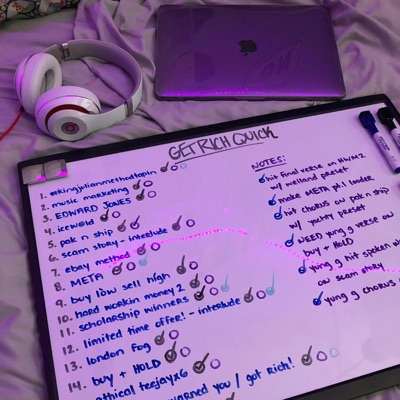 GET RICH QUICK
1. #kingjulianmethodtapin
2. music marketing
3. EDWARD JONES
4. icew@ld
5. pak n ship
6. scam story - interlude
7. ebay method
8. META
9. buy low sell high
10. hard workin money 2
11. scholarship winners
12. limited time offer! - interlude
13. london fog
14. buy + HOLD
ethical teejayx6
warned you / got rich!
NOTES:
hit final verse on HWM2
w/ melland preset
make META pt.1 loader
hit chorus ow pak n ship
w/ yachty preset
NEED yung g verse ow
buy + HOLD
yung g hit spoken
ow scam story
yung g chorus